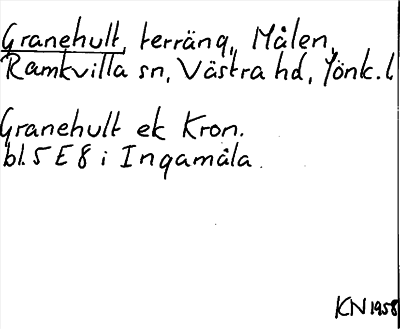 Granehult, terräng, Målen,
Ramkvilla sn, Västra hd, Jönk.l
Granehult ek Kron.
bl. 5 E 8 i Ingamåla.
KN 1958